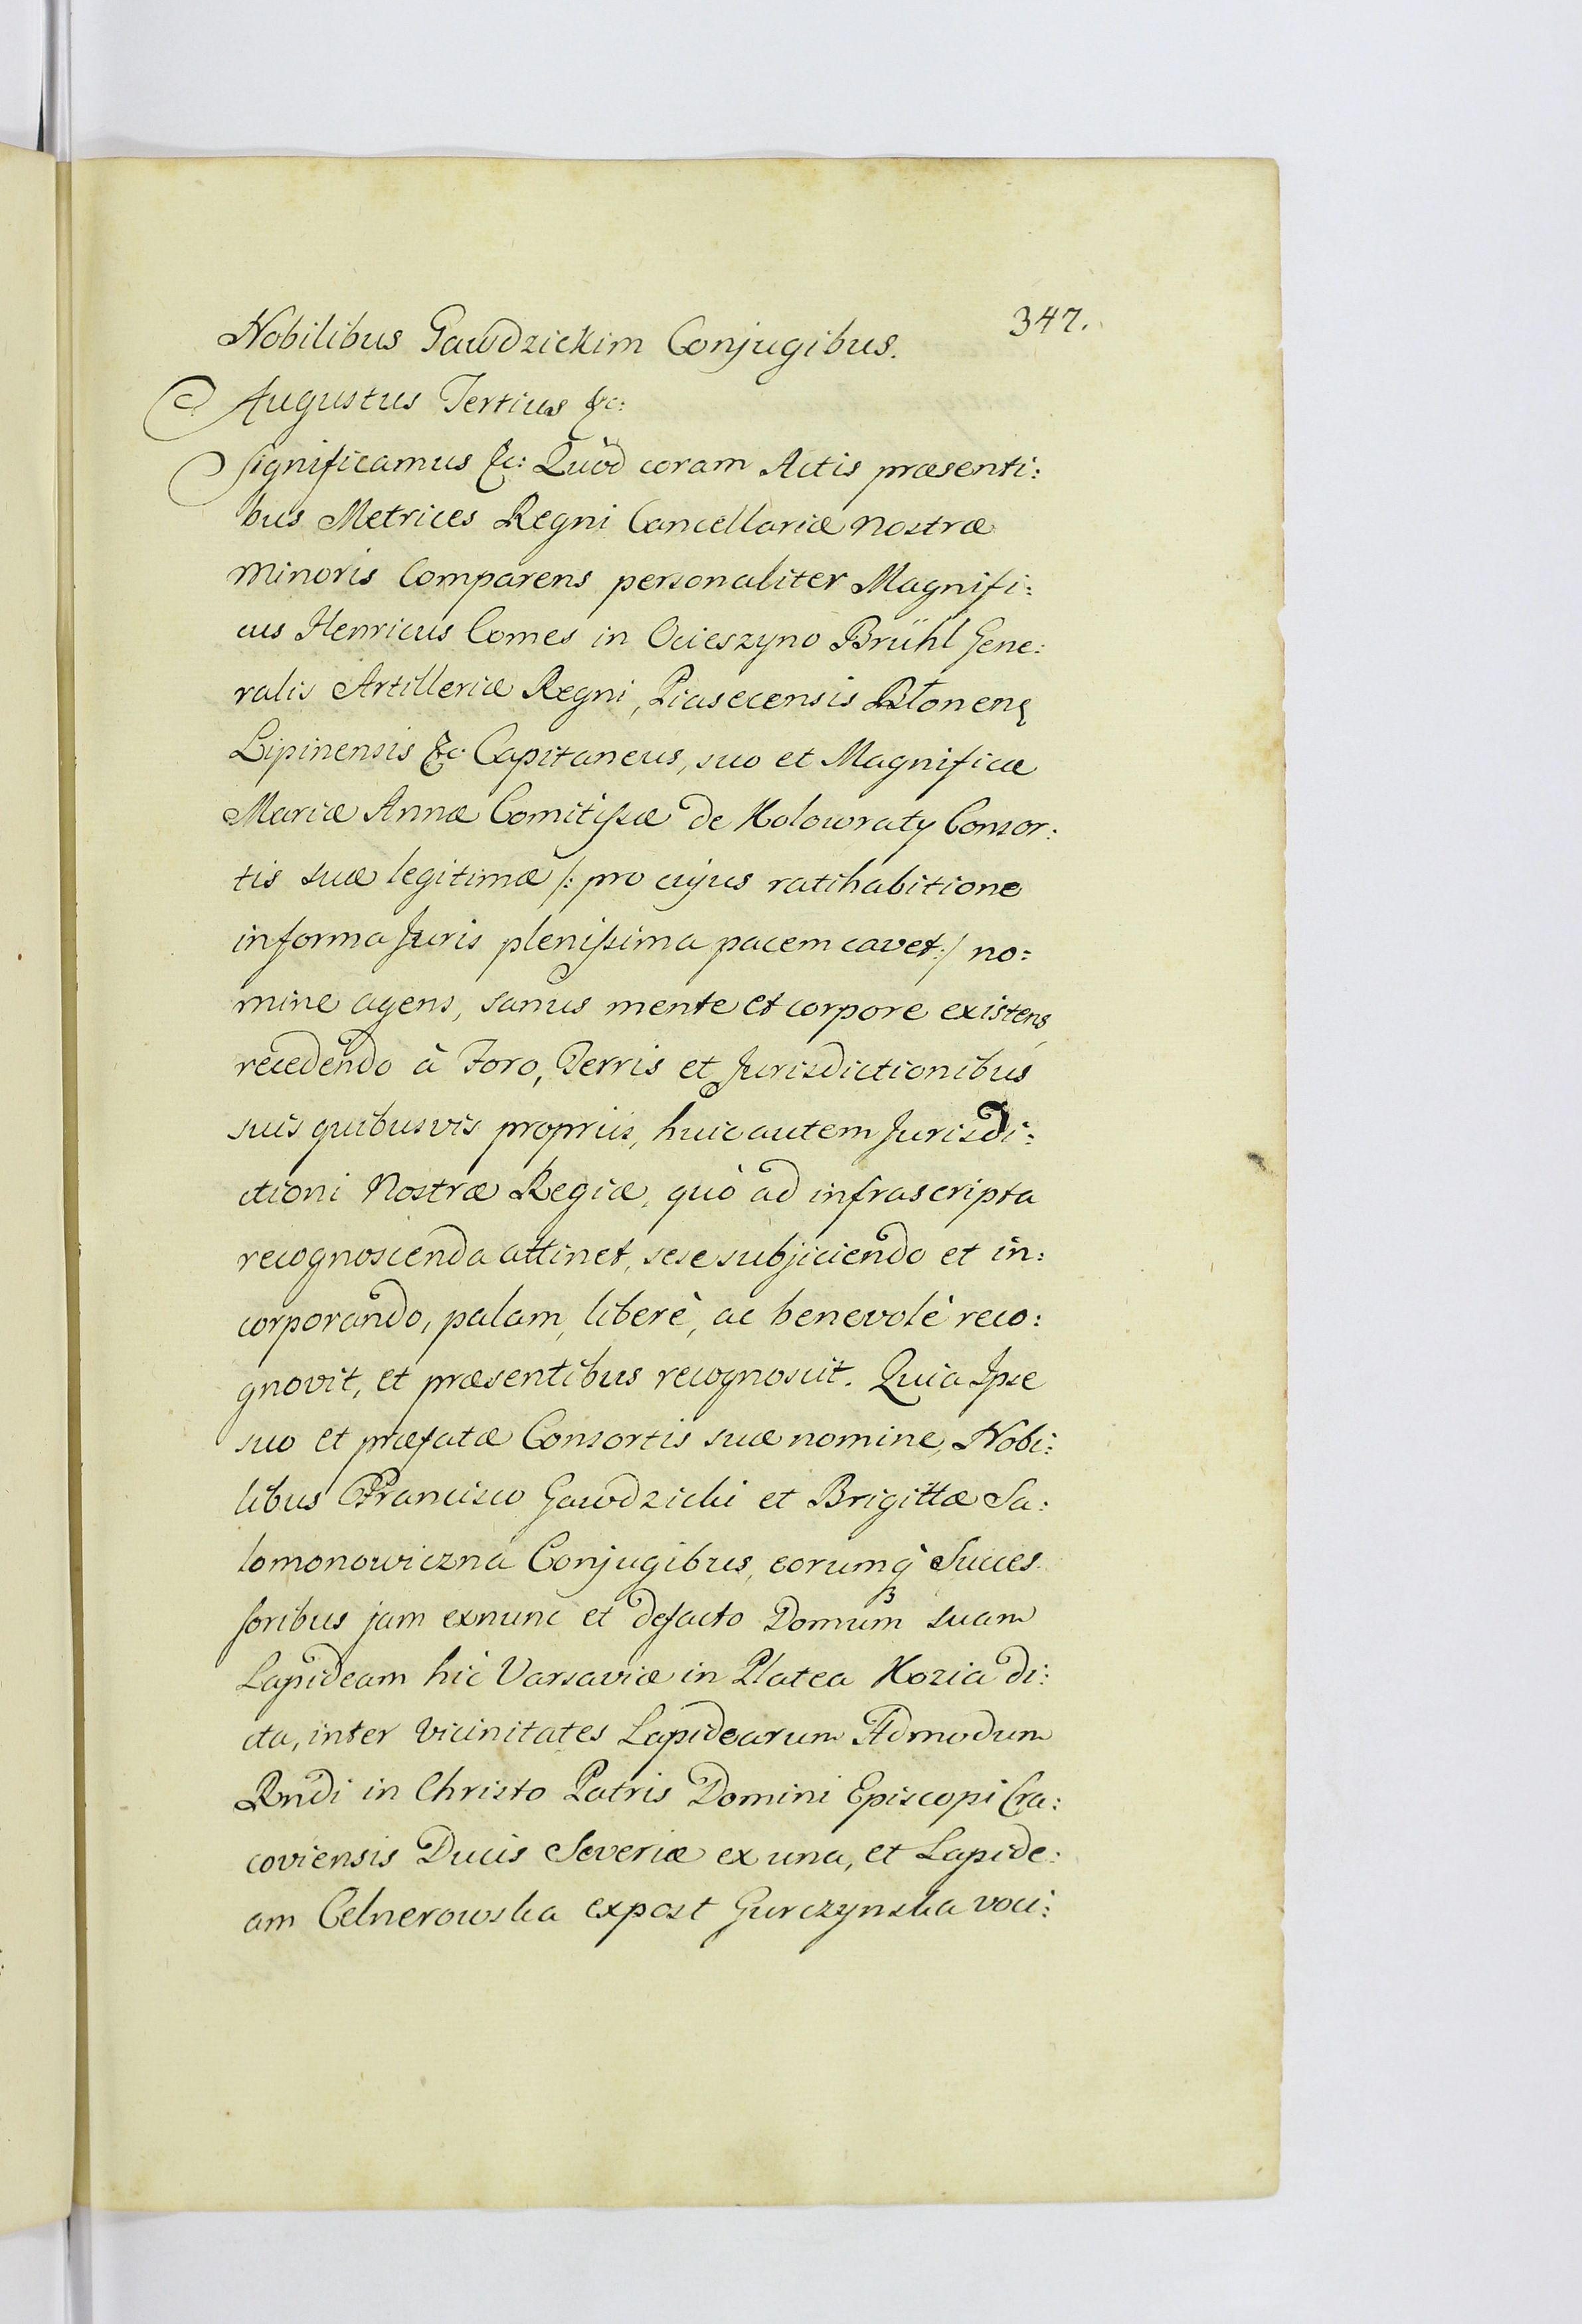 347.
Nobilibus Gawdzickim Conjugibus.
Augustus Tertius &c:
significamus &c: Quòd coram Actis præsenti:
bus Metrices Regni Cancellariæ nostræ
minoris Comparens personaliter Magnifi:
cus Henricus Comes in Ocieszyno Brühl Gene:
ralis Artilleriæ Regni, Piasecensis Błonens
Lipinensis &c Capitaneus, suo et Magnificæ
Mariæ Annæ Comitissæ de Kolowraty Consor:
tis suæ legitimæ /: pro cujus ratihabitione
in forma Juris plenissima pacem cavet :/ no:
mine agens, sanus mente et corpore existens
recedendo à Foro, Terris et Jurisdictionibus
suis quibusvis propriis, huic autem Jurisdi:
ctioni Nostræ Regiæ, quò ad infrascripta
recognoscenda attinet, sese subjiciendo et in:
corporando, palam, liberè, ac benevolè reco:
gnovit, et præsentibus recognoscit. Quia Ipse
suo et præfatæ Consortis suæ nomine, Nobi:
libus Francisco Gawdzicki et Brigittæ Sa:
lomonowiczna Conjugibus, eorumq̀ Succes
soribus jam exnunc et defacto Domum suam
Lapideam hic Varsaviæ in Platea Kozia di:
cta, inter vicinitates Lapidearum Admodum
Rndi in Christo Patris Domini Episcopi Cra:
coviensis Ducis Severiæ ex una, et Lapide:
am Celnerowska expost Gurczynska voci: